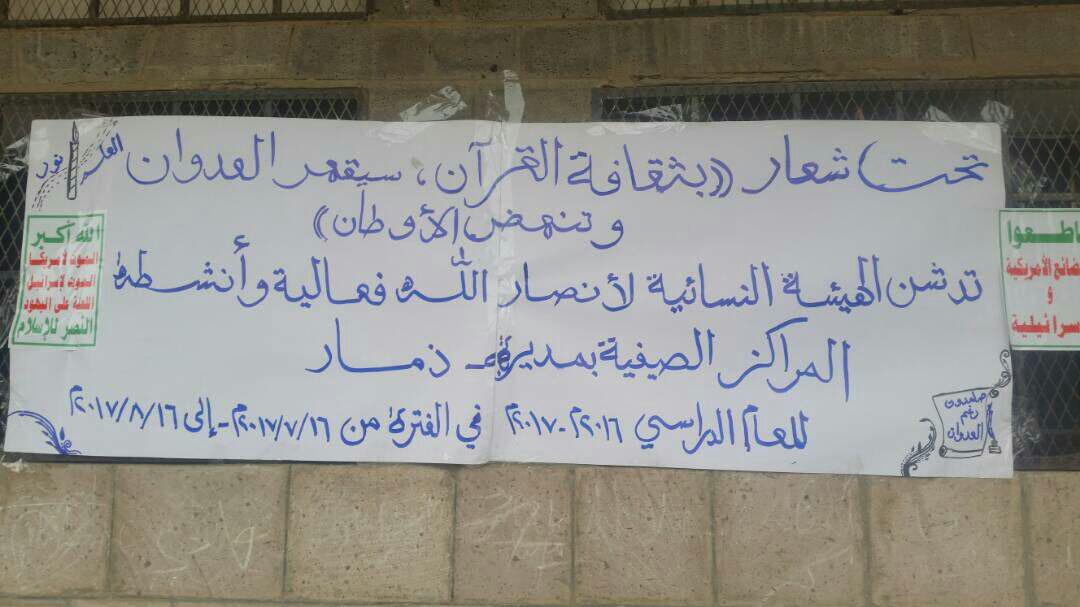 تحت شعار ((بثقافة القرآن، سيقهر العدوان
وتنهض الأوطان))
تدشن الهيئة النسائية لأنصار الله فعالية وأنشطة
المراكز الصيفية بمديرية - ذمار
للعام الدراسي ٢٠١٦م-٢٠١٧م في الفترة من ٢٠١٧/٧/١٦م - إلى ٢٠١٧/٨/١٦م
العلم نور
الله أكبر
الموت لأمريكا
الموت لإسرائيل
اللعنة على اليهود
النصر للإسلام
اطعوا
ضائع الأمريكية
و
سرائيلية
صامدون
رغم
العدوان